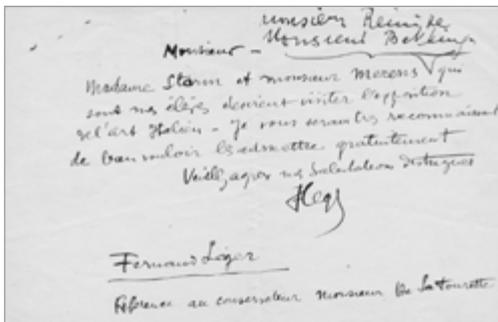 monsieur
Monsieur
Monsieur -
Madame Storm et monsieur qui
sont mes élèves desirent visiter l'exposition
de l'art Italien - Je vous serais très reconnaissant
de bien vouloir les admettre gratuitement
Veuillez agréer mes Salutations distinguées
Fernand Léger
Référence au conservateur monsieur De La tourette